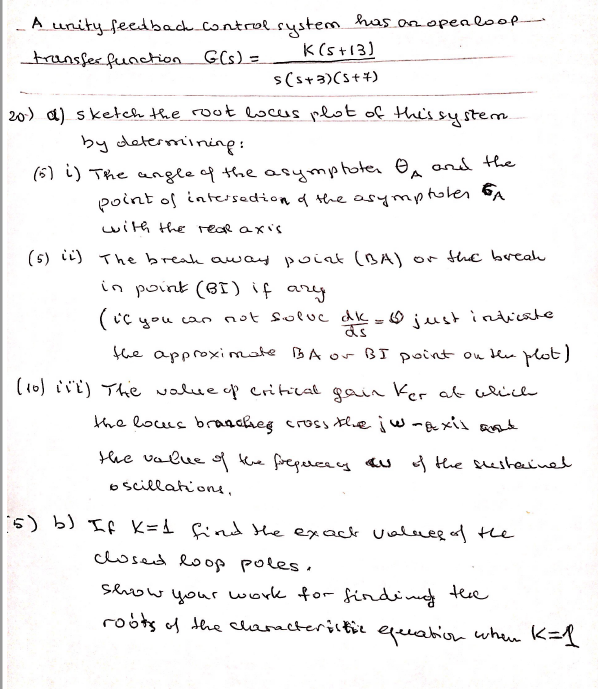 A unity feedback control system has an open loop
transfer function G(s) = K(s+13) / s(s+3)(s+7)
20) a) sketch the root locus plot of this system
by determining:
(5) i) The angle of the asymptotes θA and the
point of intersection of the asymptotes σA
with the real axis
(5) ii) The break away point (BA) or the break
in point (BI) if any
(if you can not solve dk/ds = 0 just indicate
the approximate BA or BI point on the plot)
(10) iii) The value of critical gain Kcr at which
the locus branches cross the jw-axis and
the value of the frequency w of the sustained
oscillations.
5) b) If K=1 find the exact values of the
closed loop poles.
show your work for finding the
roots of the characteristic equation when K=1